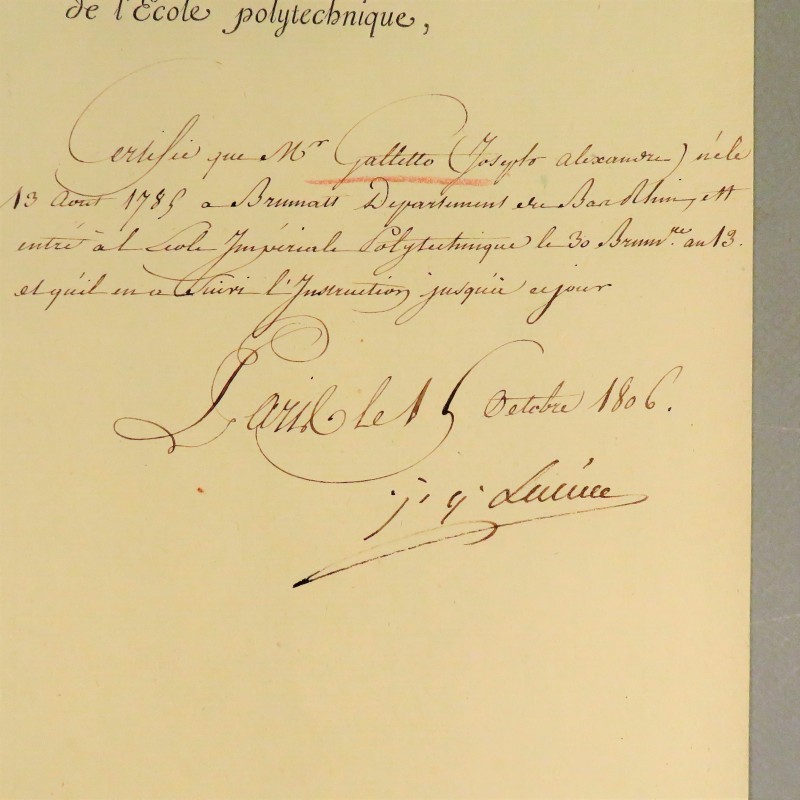 de l'Ecole polytechnique,
Certifie que Mr Galtetto (Joseph alexandre) né le
13 Aout 1785 a Brumatt Departement du Bas Rhin, est
entré à l'Ecole Impériale Polytechnique le 30 Brumre. an 13.
et qu'il en a Suivi l'Instruction jusqu'à ce jour
Paris le 15 Octobre 1806.